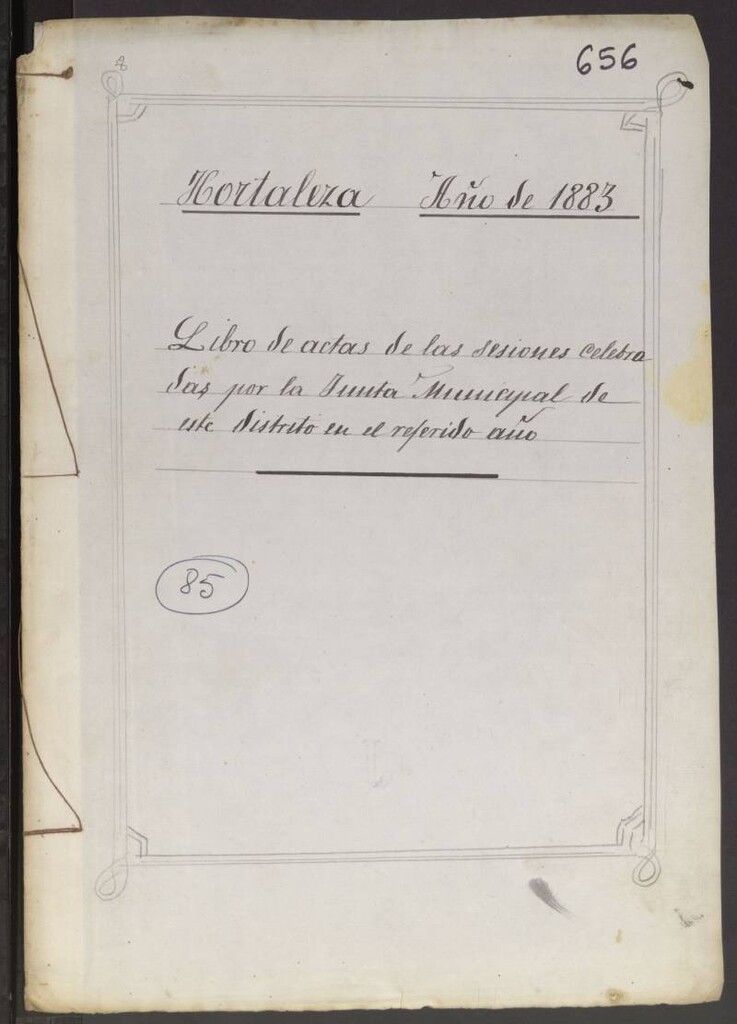 656
Hortaleza Año de 1883
Libro de actas de las sesiones celebra
das por la Junta Municipal de
este distrito en el referido año
85